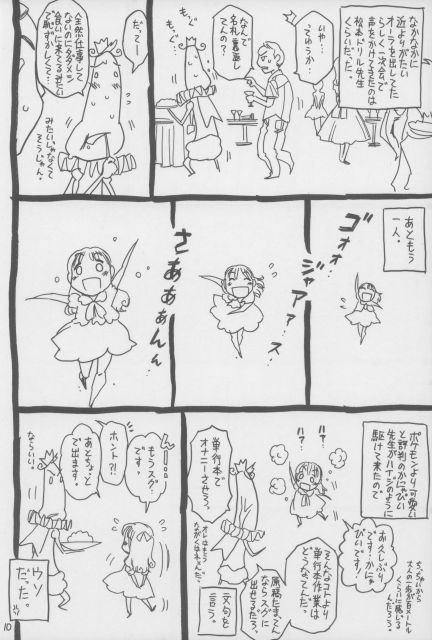 なかなかに
近よりがたい
オーラを出してた
らしく一次会で
声をかけてきたのは
松本ドリル先生
くらいだった。
いや…
ってゆうか…
なんで
名札裏返し
てんの？
もぐ
もぐ
だって—
全然仕事して
ないのにタダメシ
食いに来てるみたい
で恥ずかしくて…
みたいじゃなくて
そうじゃん。
あともう
一人。
ゴォォ…
ジャアァァス
さあぁぁんん
ポケモンより可愛い
と評判のかにゃぴぃ
先生がハイジのように
駆けて来たので
お久しぶり
です！かにゃ
ぴぃです！
ハァ？
ハァ？
そんなコトより
単行本作業は
どうなてんだ。
原稿たまてん
ならスグに
出せるだろ。
単行本で
オナニーさせろ。
と
文句を
言う。
んー…
もうスグ
です。
ホント？！
あとちょっと
で出ます。
ならいい。
ウソ
だった。
10